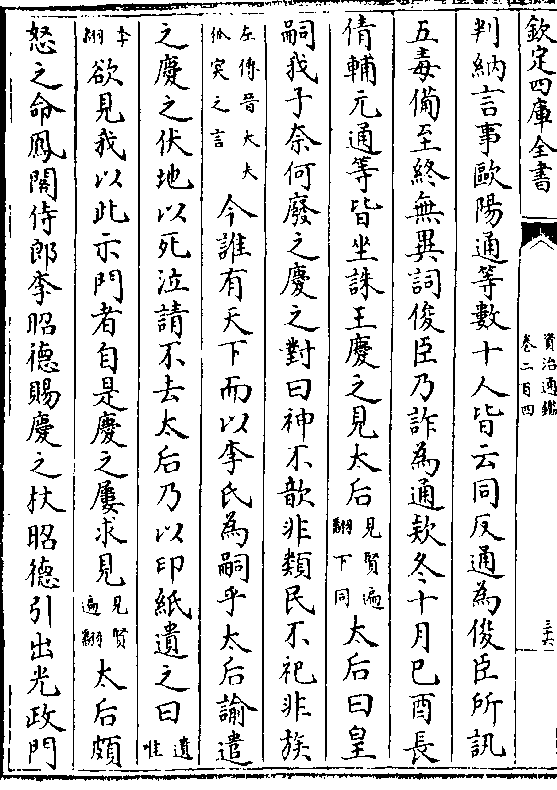 欽定四庫全書
資治通鑑
卷二百四
三六
判納言事歐陽通等數十人皆云同反通為俊臣所訊
五毒備至終無異詞俊臣乃詐為通欵冬十月己酉長
倩輔元通等皆坐誅王慶之見太后見賢遍翻下同太后曰皇
嗣我子奈何廢之慶之對曰神不歆非類民不祀非族
左傳晉大夫狐突之言今誰有天下而以李氏為嗣乎太后諭遣
之慶之伏地以死泣請不去太后乃以印紙遺之曰遺惟
季翻欲見我以此示門者自是慶之屢求見見賢遍翻太后頗
怒之命鳳閣侍郎李昭德賜慶之杖昭德引出光政門